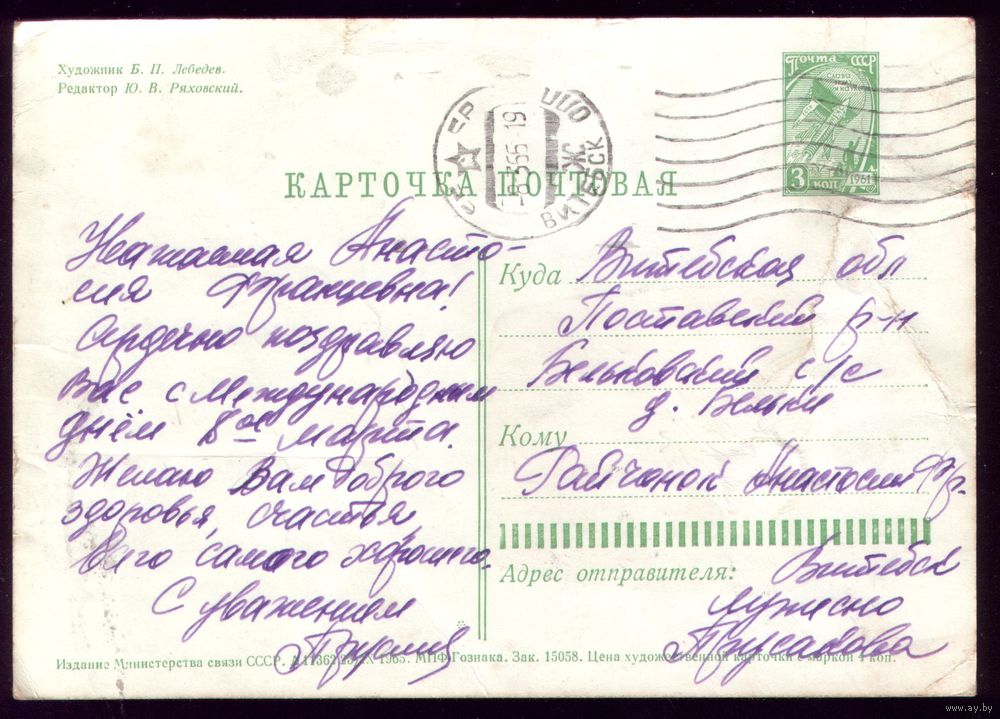 Художник Б. П. Лебедев.
Редактор Ю. В. Ряховский.
Почта СССР
3 коп
1961
СССР
ВИТЕБСК
КАРТОЧКА ПОЧТОВАЯ
Уважаемая Анаста-
сия Францевна!
Сердечно поздравляю
Вас с Международным
днём 8ое марта.
Желаю Вам доброго
здоровья, счастья,
всего самого хорошего.
С уважением
Куда Витебская обл
Поставский р-н
Бельковский с/с
д. Бельки
Кому
Райчонок Анастасии Фр.
Адрес отправителя: Витебск
Лужесно
Прусакова
Издание Министерства связи СССР. 1965. МПФ Гознака. Зак. 15058. Цена художественной карточки с маркой 4 коп.
www.ay.by